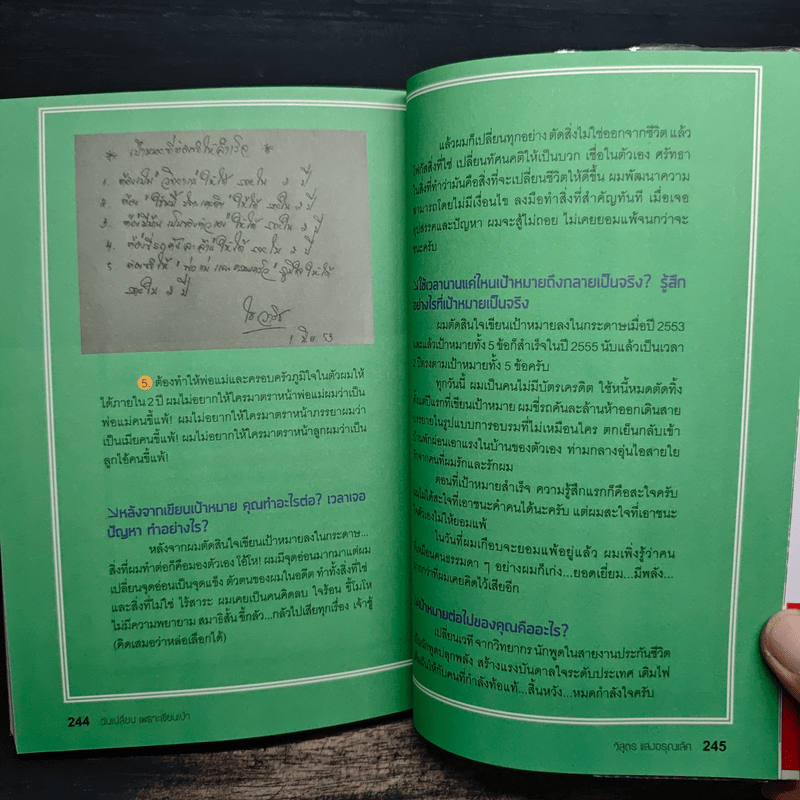 * เป้าหมายที่ต้องทำให้สำเร็จ *
1. ต้องเป็น "วิทยากร" ให้ได้ ภายใน 2 ปี
2. ต้อง "ใช้หนี้ บัตรเครดิต" ให้ได้ ภายใน 2 ปี
3. ต้องมีบ้าน เป็นของตัวเอง ให้ได้ ภายใน 2 ปี
4. ต้องขี่รถคันละล้าน ให้ได้ ภายใน 2 ปี
5. ต้องทำให้ "พ่อ แม่ และ ครอบครัว" ภูมิใจให้ได้
ภายใน 2 ปี
53
5. ต้องทำให้พ่อแม่และครอบครัวภูมิใจในตัวผมให้
ได้ภายใน 2 ปี ผมไม่อยากให้ใครมาตราหน้าพ่อแม่ผมว่าเป็น
พ่อแม่คนขี้แพ้! ผมไม่อยากให้ใครมาตราหน้าภรรยาผมว่า
เป็นเมียคนขี้แพ้! ผมไม่อยากให้ใครมาตราหน้าลูกผมว่าเป็น
ลูกไอ้คนขี้แพ้!
หลังจากเขียนเป้าหมาย คุณทำอะไรต่อ? เวลาเจอ
ปัญหา ทำอย่างไร?
หลังจากผมตัดสินใจเขียนเป้าหมายลงในกระดาษ...
สิ่งที่ผมทำต่อก็คือมองตัวเอง โอ้โห! ผมมีจุดอ่อนมากมาแต่ผม
เปลี่ยนจุดอ่อนเป็นจุดแข็ง ตัวตนของผมในอดีต ทำทั้งสิ่งที่ใช่
และสิ่งที่ไม่ใช่ ไร้สาระ ผมเคยเป็นคนคิดลบ ใจร้อน ขี้โมโห
ไม่มีความพยายาม สมาธิสั้น ขี้กลัว...กลัวไปเสียทุกเรื่อง เจ้าชู้
(คิดเสมอว่าหล่อเลือกได้)
244 ฉันเปลี่ยน เพราะเขียนเป้า
แล้วผมก็เปลี่ยนทุกอย่าง ตัดสิ่งไม่ใช่ออกจากชีวิต แล้ว
โฟกัสสิ่งที่ใช่ เปลี่ยนทัศนคติให้เป็นบวก เชื่อในตัวเอง ศรัทธา
ในสิ่งที่ทำว่ามันคือสิ่งที่จะเปลี่ยนชีวิตให้ดีขึ้น ผมพัฒนาความ
สามารถโดยไม่มีเงื่อนไข ลงมือทำสิ่งที่สำคัญทันที เมื่อเจอ
อุปสรรคและปัญหา ผมจะสู้ไม่ถอย ไม่เคยยอมแพ้จนกว่าจะ
ชนะครับ
ใช้เวลานานแค่ไหนเป้าหมายถึงกลายเป็นจริง? รู้สึก
อย่างไรที่เป้าหมายเป็นจริง
ผมตัดสินใจเขียนเป้าหมายลงในกระดาษเมื่อปี 2553
และแล้วเป้าหมายทั้ง 5 ข้อก็สำเร็จในปี 2555 นับแล้วเป็นเวลา
2 ปีตรงตามเป้าหมายทั้ง 5 ข้อครับ
ทุกวันนี้ ผมเป็นคนไม่มีบัตรเครดิต ใช้หนี้หมดตัดทิ้ง
ตั้งแต่ปีแรกที่เขียนเป้าหมาย ผมขี่รถคันละล้านห้าออกเดินสาย
บรรยายในรูปแบบการอบรมที่ไม่เหมือนใคร ตกเย็นกลับเข้า
บ้านพักผ่อนเอาแรงในบ้านของตัวเอง ท่ามกลางอุ่นไอสายใย
รักจากคนที่ผมรักและรักผม
ตอนที่เป้าหมายสำเร็จ ความรู้สึกแรกก็คือสะใจครับ
ผมไม่ได้สะใจที่เอาชนะคำคนได้นะครับ แต่ผมสะใจที่เอาชนะ
ใจตัวเองไม่ให้ยอมแพ้
ในวันที่ผมเกือบจะยอมแพ้อยู่แล้ว ผมเพิ่งรู้ว่าคน
ที่เหมือนคนธรรมดา ๆ อย่างผมก็เก่ง...ยอดเยี่ยม...มีพลัง...
มากกว่าที่ผมเคยคิดไว้เสียอีก
เป้าหมายต่อไปของคุณคืออะไร?
เปลี่ยนเวที จากวิทยากร นักพูดในสายงานประกันชีวิต
เป็นนักพูดปลุกพลัง สร้างแรงบันดาลใจระดับประเทศ เติมไฟ
ให้กับคนที่กำลังท้อแท้...สิ้นหวัง...หมดกำลังใจครับ
วิสูตร แสงอรุณเลิศ 245